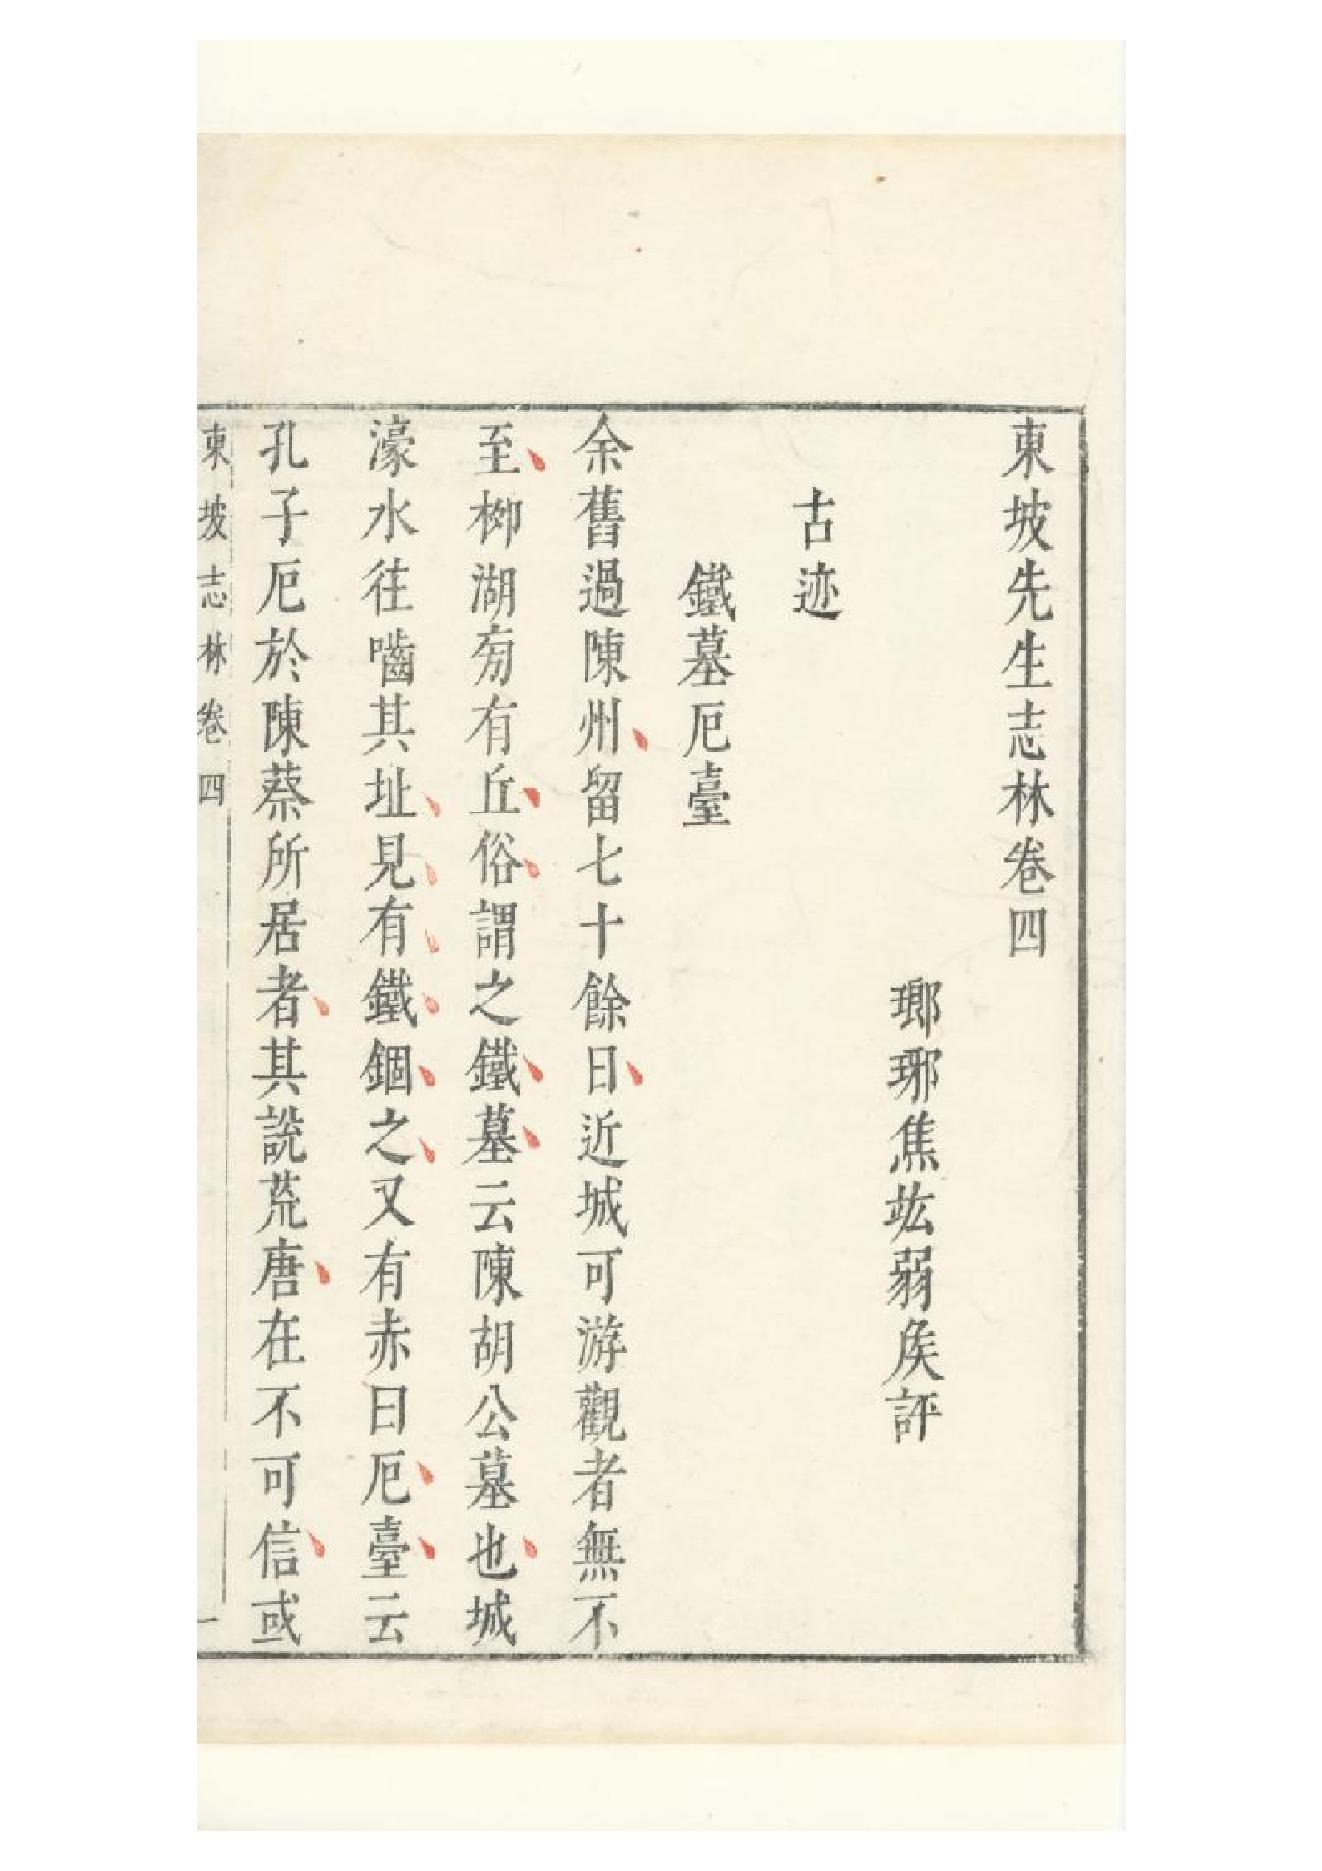 東坡先生志林卷四
瑯琊焦竑弱侯評
古迹
鐵墓厄臺
余舊過陳州留七十餘日近城可游觀者無不
至柳湖旁有丘俗謂之鐵墓云陳胡公墓也城
濠水往嚙其址見有鐵錮之又有赤曰厄臺云
孔子厄於陳蔡所居者其說荒唐在不可信或
東坡志林卷四
一